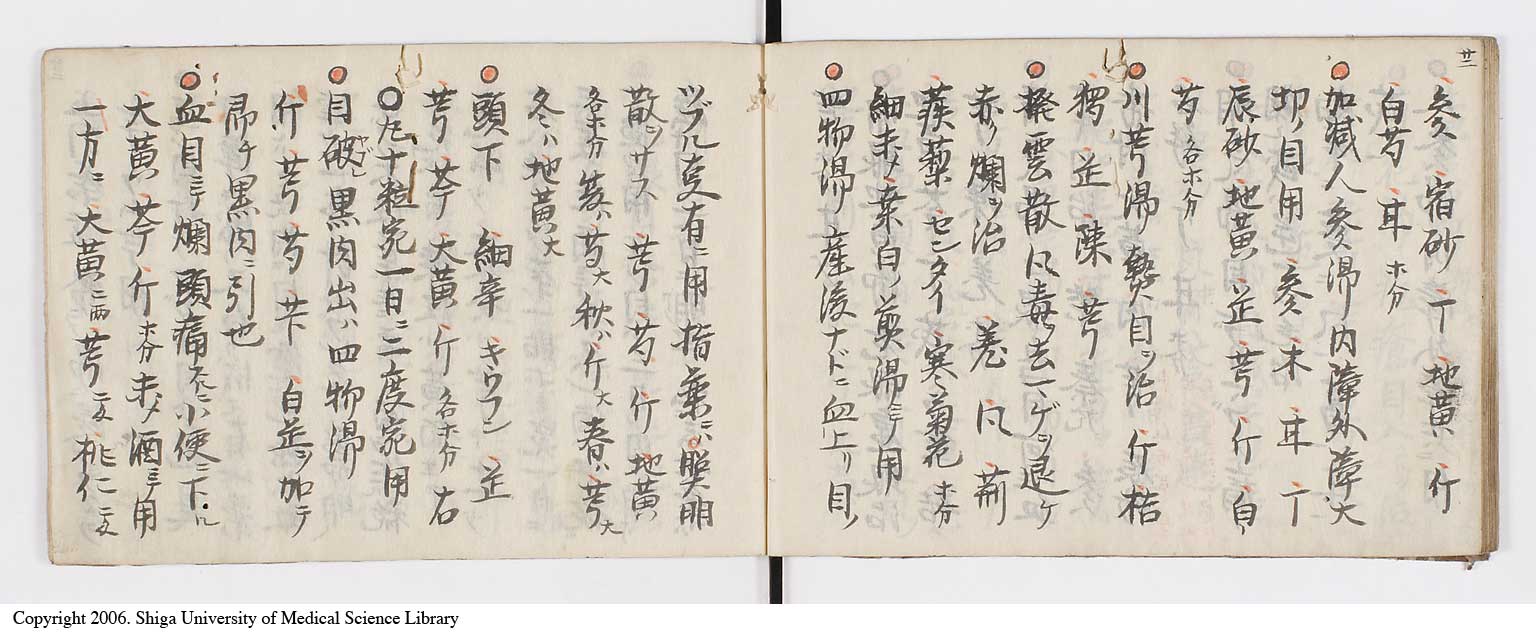 廿二
参 宿砂 丁 地黄 行
白芍 耳 ホ分
加减人参湯内障外障大
切ノ目用 参 木 耳 丁
辰砂 地黄 芷 芎 行 白
芍 各ホ分
川芎湯 熱目ヲ治 行 桔
獨 芷 陳 芎
撥雲散 風毒ヲ去一ゲヲ退ケ
赤リ爛ヲ治 羗 風 荊
蒺藜 センタイ 寒菊花 ホ分
細末〆桑白ノ煎湯ニテ用
四物湯 産後ナドニ血上リ目ノ
ツブル㕝有ニ用 指薬ニハ 照明
散ヲサス 芎 芍 行 地黄
各ホ分 夏ハ芍大 秋ハ行大 春ハ芎大
冬ハ地黄大
頭下 細辛 キワフン 芷
芎 芩 大黄 行 各ホ分 右
丸十粒宛一日ニ二度宛用
目破レ黒肉出ハ四物湯
行 芎 芍 芐 白芷ヲ加テ
即チ黒肉ニ引也
血目ニテ爛頭痛 小便ニ下ル
大黄 芩 行 ホ分 末〆酒ニテ用
一方ニ大黄二両 芎二文 桃仁二文
Copyright 2006. Shiga University of Medical Science Library